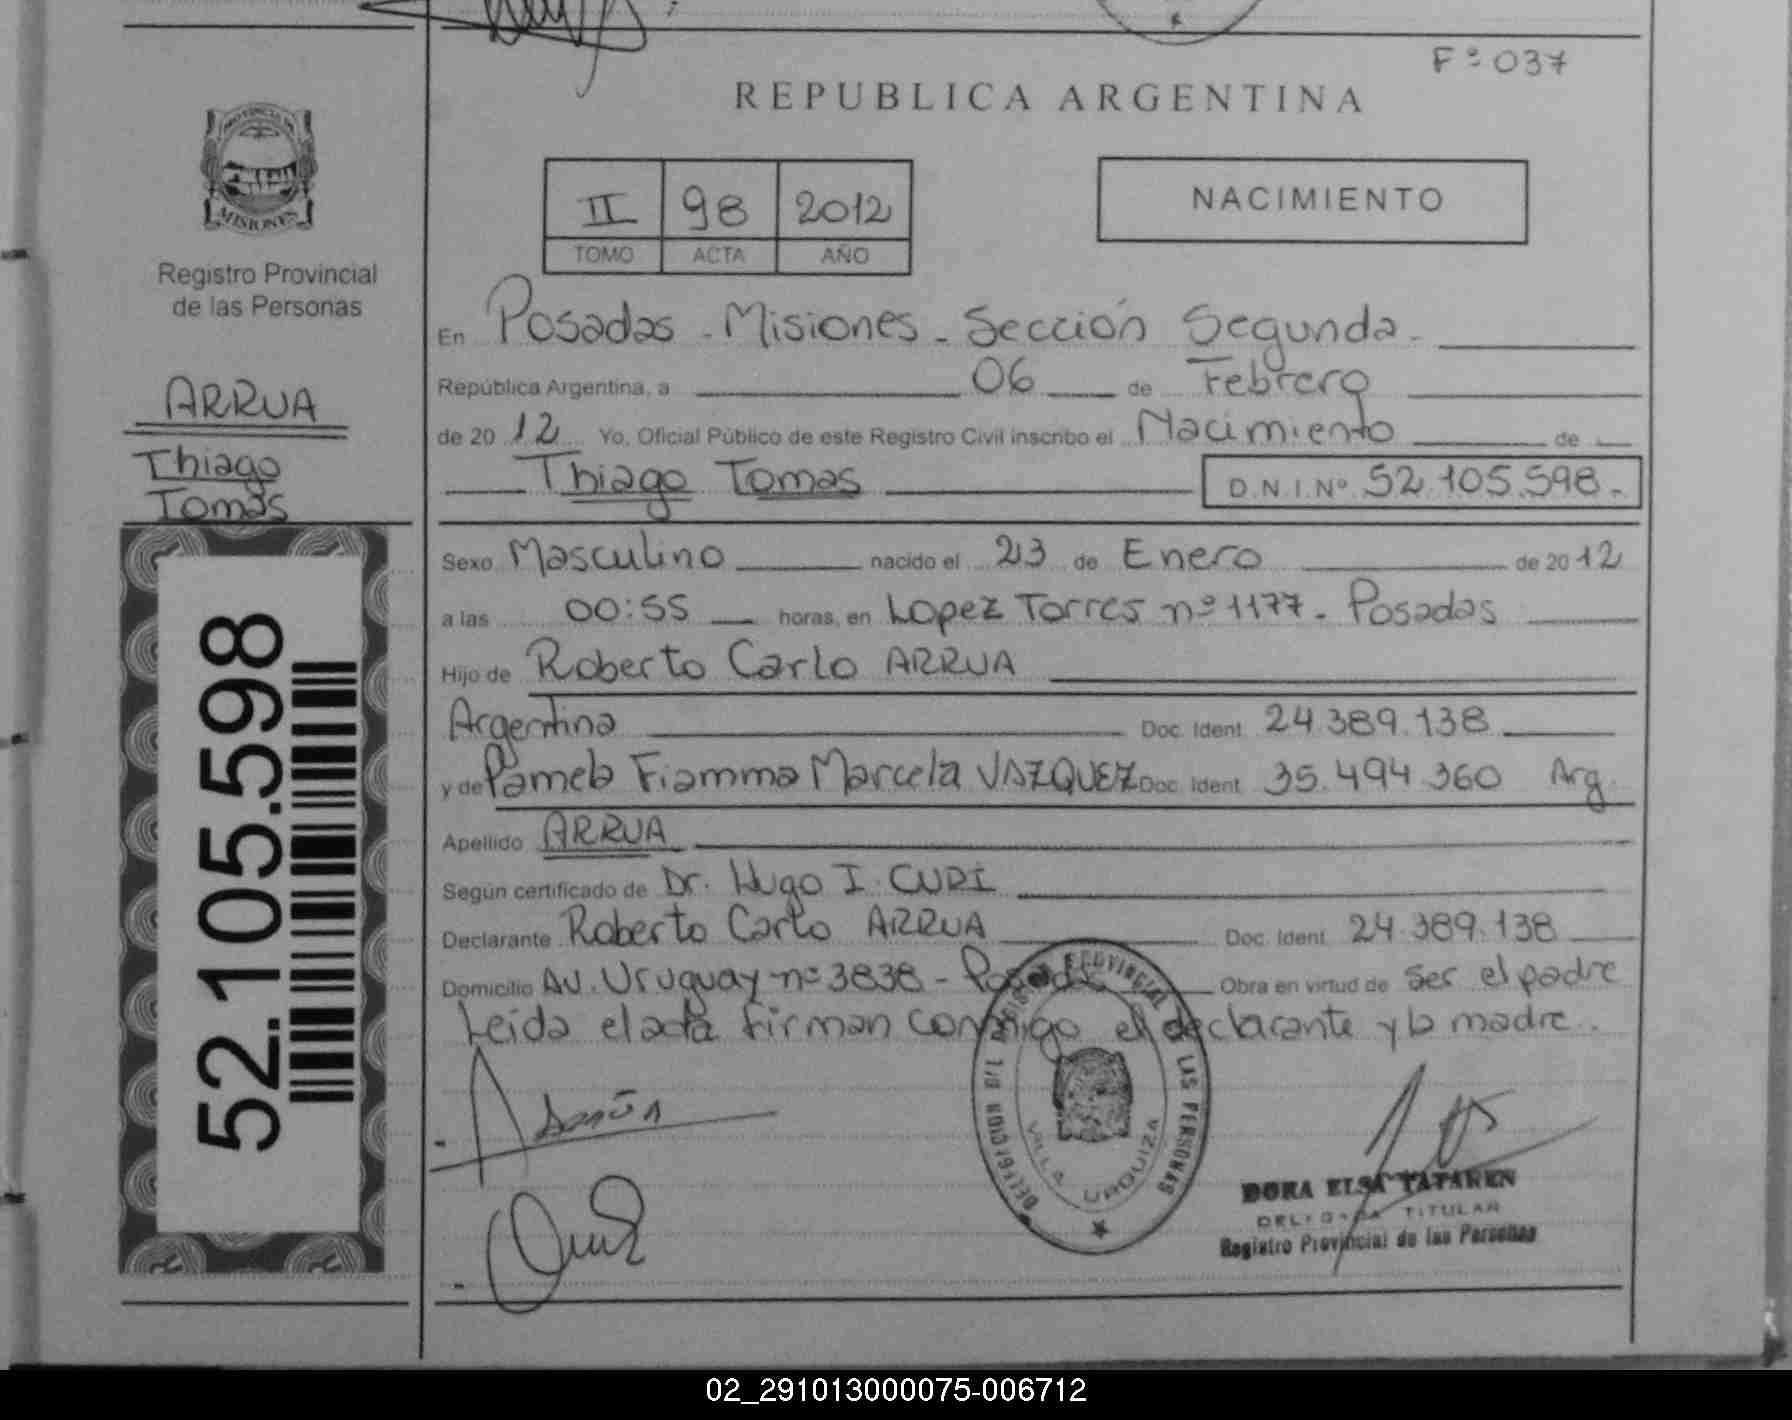 Fº 037
REPUBLICA ARGENTINA
PROVINCIA DE
MISIONES
Registro Provincial
de las Personas
II 98 2012
TOMO ACTA AÑO
NACIMIENTO
ARRUA
Thiago
Tomás
En Posadas - Misiones - Sección Segunda -
República Argentina, a 06 de Febrero
de 20 12 Yo, Oficial Público de este Registro Civil inscribo el Nacimiento de
Thiago Tomas D.N.I.Nº 52.105.598.-
Sexo Masculino nacido el 23 de Enero de 20 12
a las 00:55 horas, en Lopez Torres nº 1177 - Posadas
Hijo de Roberto Carlo ARRUA
Argentina Doc. Ident. 24.389.138
y de Pamela Fiamma Marcela VAZQUEZ Doc. Ident. 35.494.360 Arg.
Apellido ARRUA
Según certificado de Dr. Hugo I. CURI
Declarante Roberto Carlo ARRUA Doc. Ident. 24.389.138
Domicilio Av. Uruguay nº 3838 - Posadas Obra en virtud de ser el padre
Leida el acta firman conmigo el declarante y la madre.
52.105.598
DELEGACION REGISTRO PROVINCIAL DE LAS PERSONAS
VILLA URQUIZA
DORA ELSA
DELEGADA TITULAR
Registro Provincial de las Personas
02_291013000075-006712